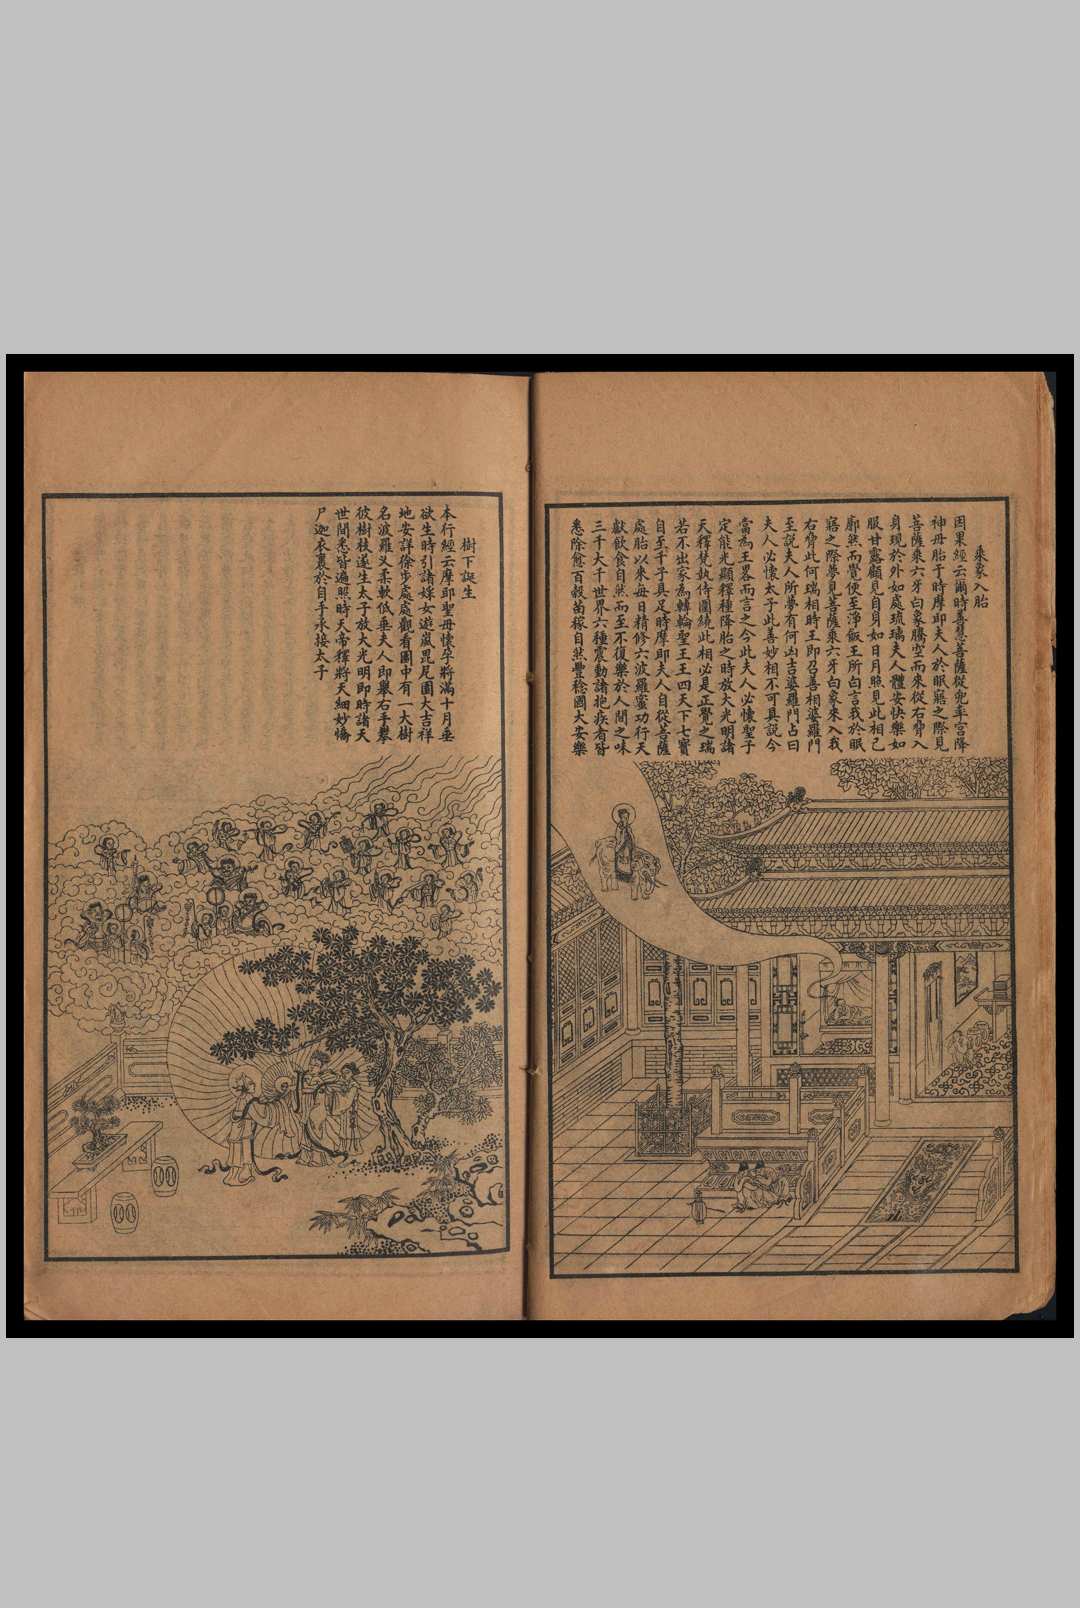 乘象入胎
因果經云爾時善慧菩薩從兜率宮降
神母胎于時摩耶夫人於眠寤之際見
菩薩乘六牙白象騰空而來從右脅入
身現於外如處琉璃夫人體安快樂如
服甘露顧見自身如日月照見此相已
廓然而覺便至淨飯王所白言我於眠
寤之際夢見菩薩乘六牙白象來入我
右脅此何瑞相時王即召善相婆羅門
至說夫人所夢有何凶吉婆羅門占曰
夫人必懷太子此善妙相不可具說今
當為王畧而言之今此夫人必懷聖子
定能光顯釋種降胎之時放大光明諸
天釋梵執侍圍繞此相必是正覺之瑞
若不出家為轉輪聖王王四天下七寶
自至千子具足時摩耶夫人自從菩薩
處胎以來每日精修六波羅蜜功行天
獻飲食自然而至不復樂於人間之味
三千大千世界六種震動諸抱疾者皆
悉除愈百穀苗稼自然豐稔國大安樂
樹下誕生
本行經云摩耶聖母懷孕將滿十月垂
欲生時引諸婇女遊嵐毘尼園大吉祥
地安詳徐步處處觀看園中有一大樹
名波羅叉柔軟低垂夫人即舉右手攀
彼樹枝遂生太子放大光明即時諸天
世間悉皆遍照時天帝釋將天細妙憍
尸迦衣裹於自手承接太子